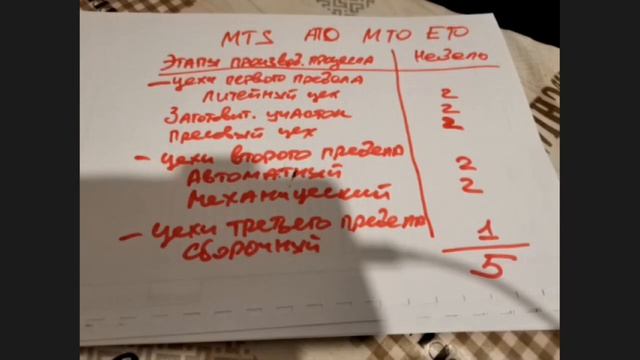 MTS ATO MTO ETO
Этапы произвад. процесса Недель
– цехи первого предела
Литейный цех 2
Заготовит. участок 2
Пресовый цех 2
– цехи второго предела
Автоматный 2
Механический 2
– цехи третьего предела 1
Сборочный
5